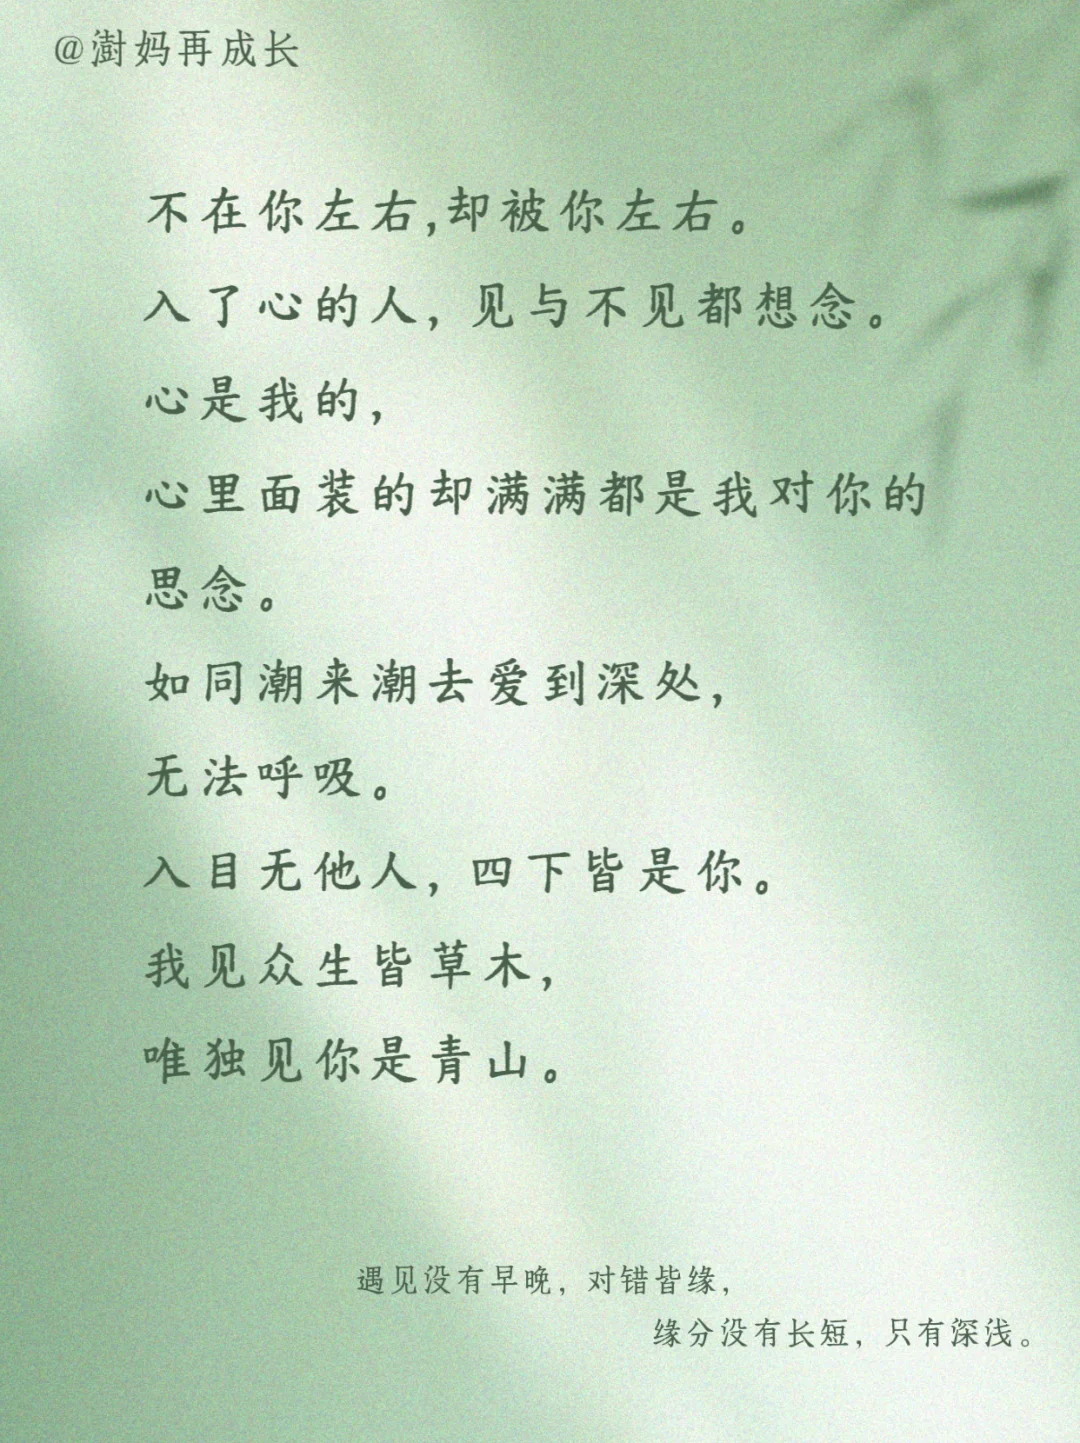 @澍妈再成长
不在你左右,却被你左右。
入了心的人，见与不见都想念。
心是我的，
心里面装的却满满都是我对你的
思念。
如同潮来潮去爱到深处，
无法呼吸。
入目无他人，四下皆是你。
我见众生皆草木，
唯独见你是青山。
遇见没有早晚，对错皆缘，
缘分没有长短，只有深浅。